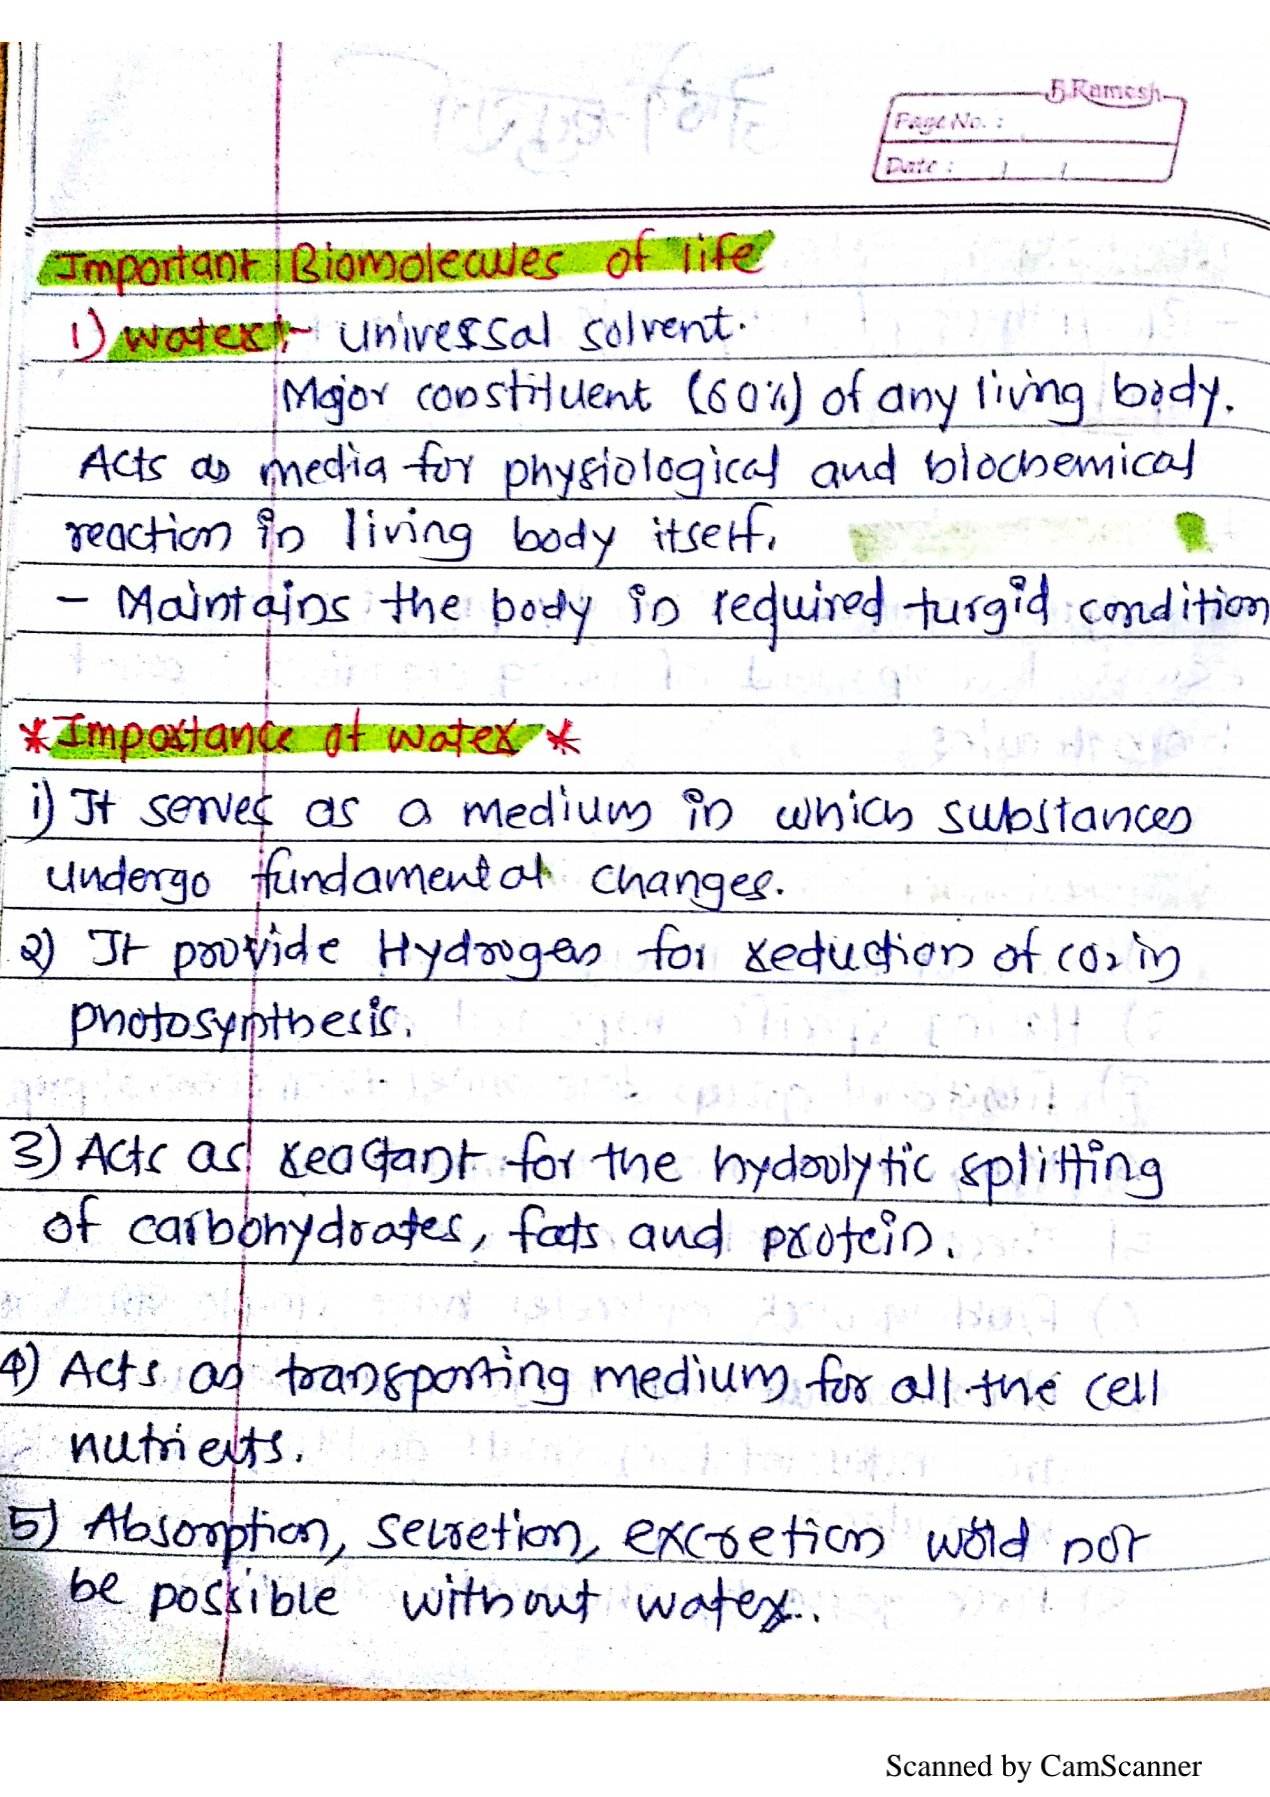 Ramesh
Page No. :
Date : / /
Important Biomolecules of life
1) water :- universal solvent.
Major constituent (60%) of any living body.
Acts as media for physiological and biochemical
reaction in living body itself.
- Maintains the body in required turgid condition
* Importance of water *
i) It serves as a medium in which substances
undergo fundamental changes.
2) It provide Hydrogen for reduction of CO2 in
photosynthesis.
3) Acts as reactant for the hydrolytic splitting
of carbohydrates, fats and protein.
4) Acts as transporting medium for all the cell
nutrients.
5) Absorption, secretion, excretion would not
be possible without water.
Scanned by CamScanner